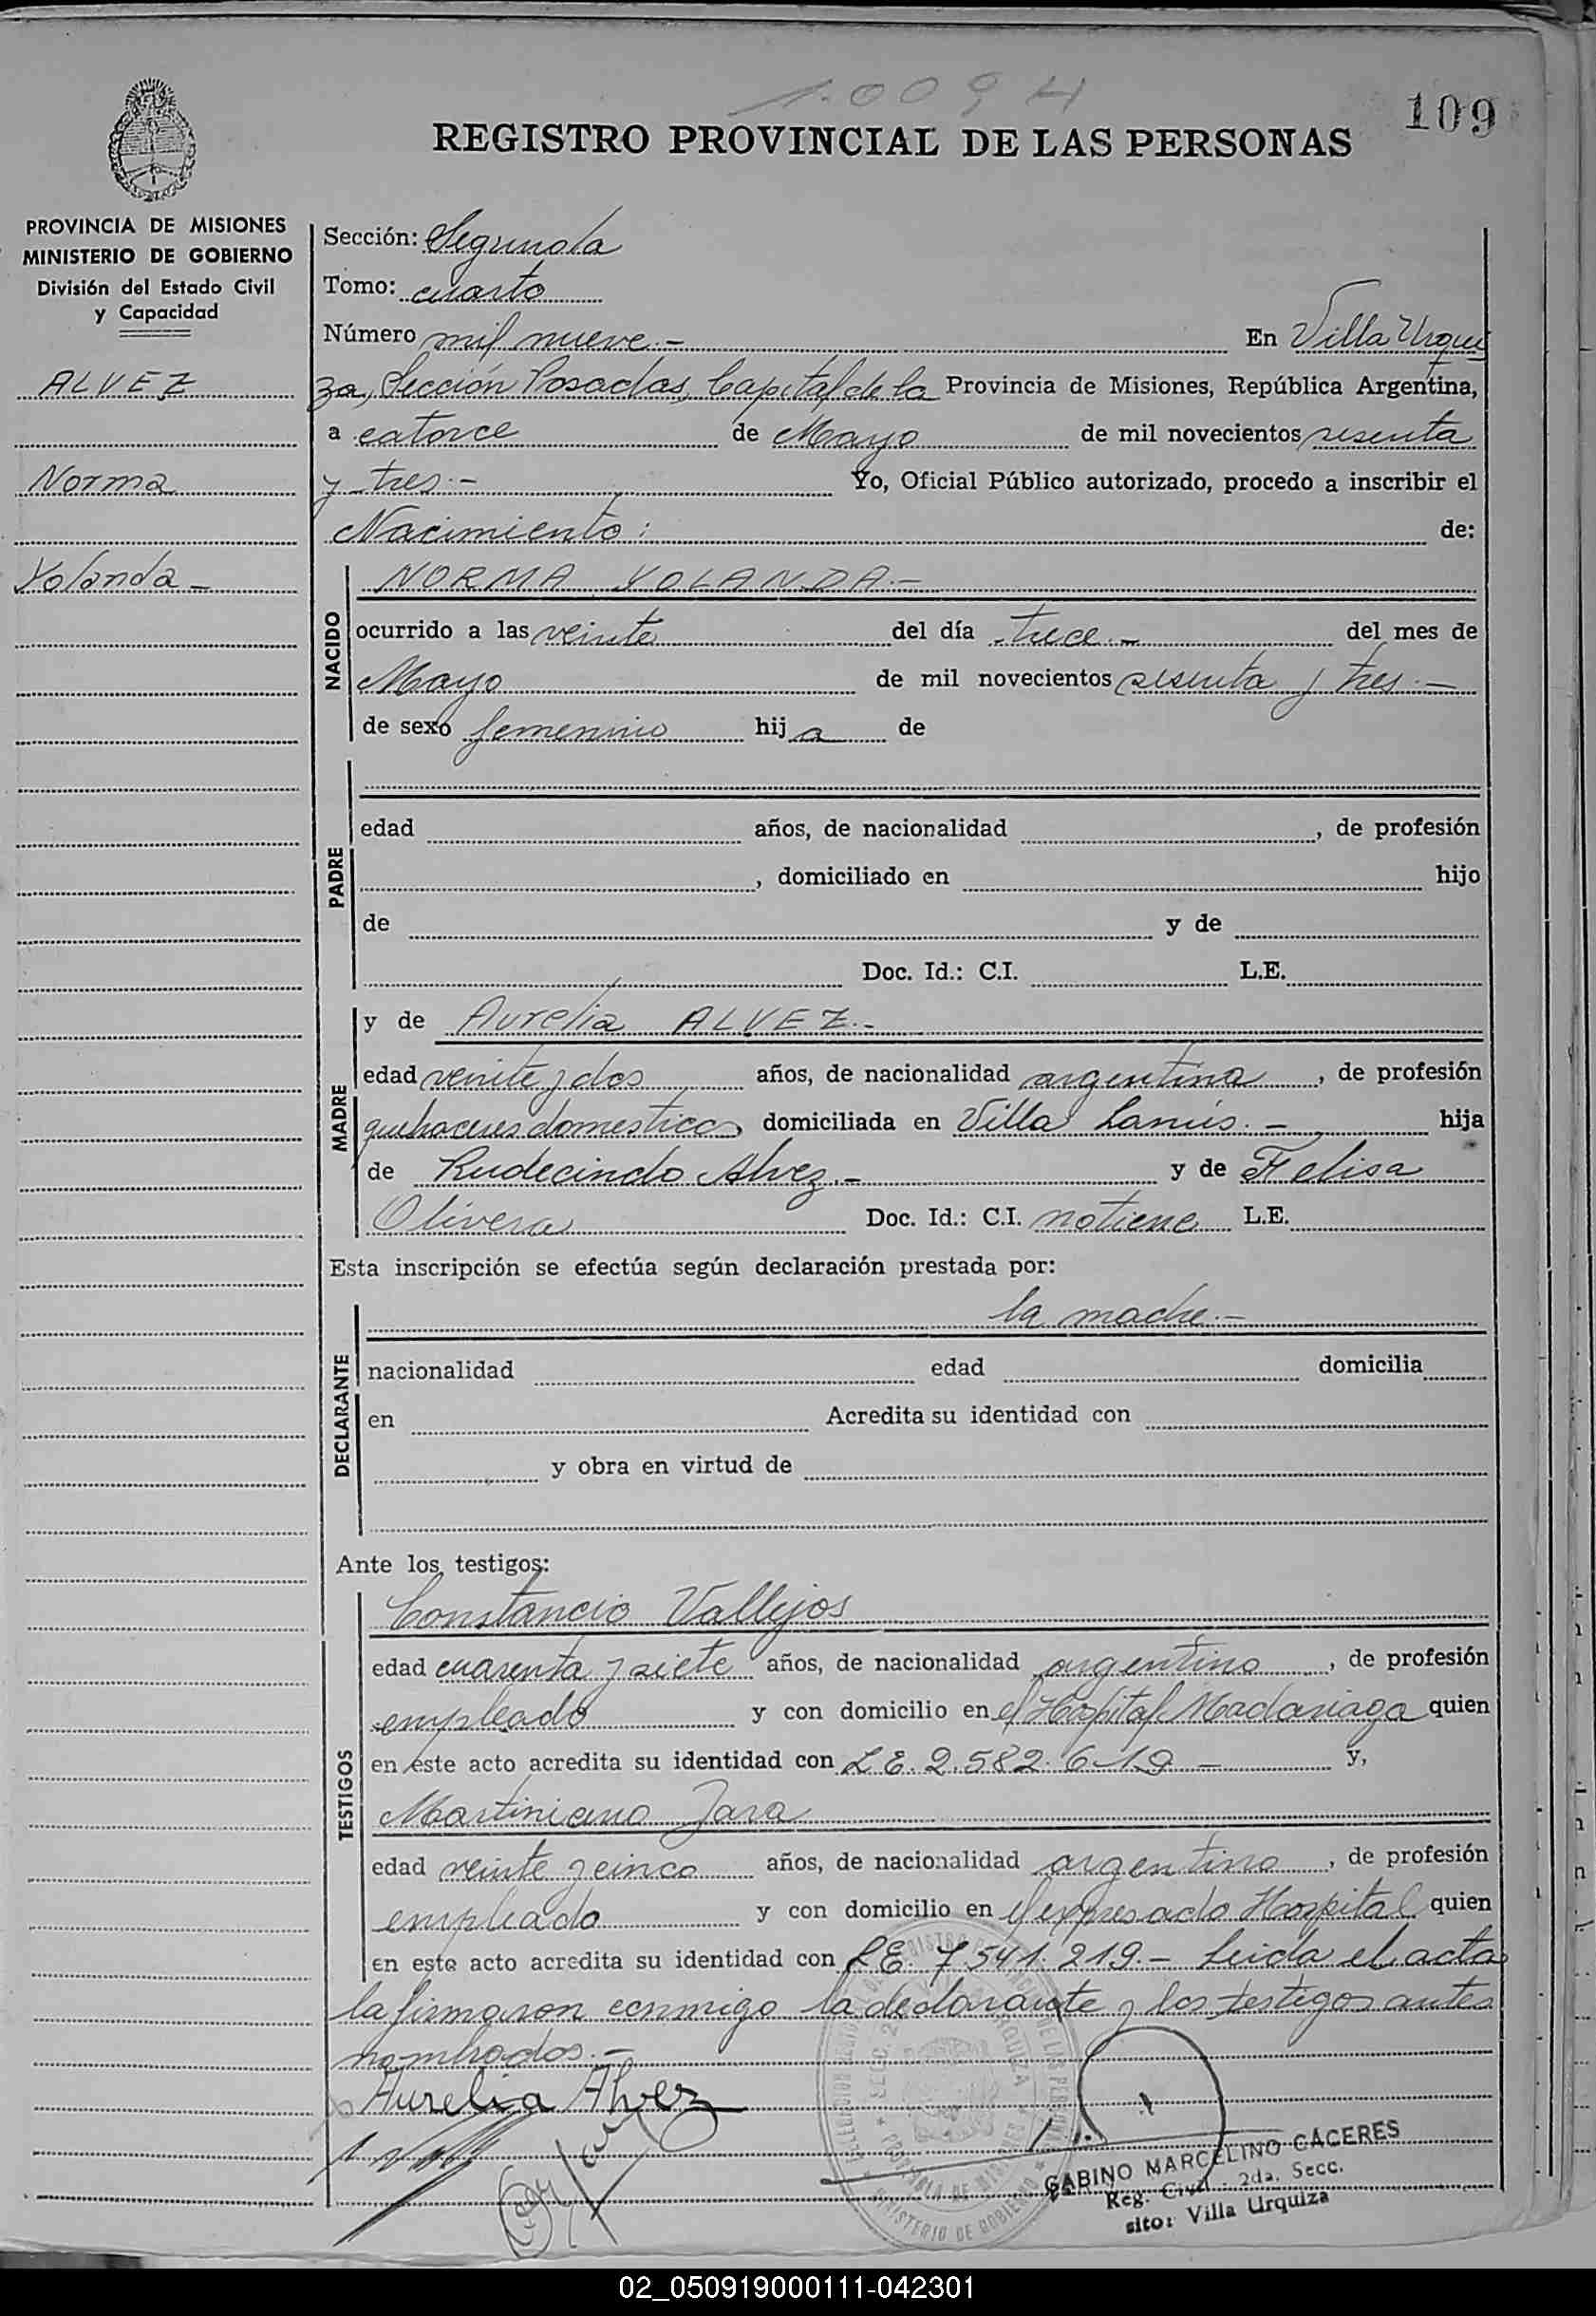 1.009 H
109
REGISTRO PROVINCIAL DE LAS PERSONAS
PROVINCIA DE MISIONES
MINISTERIO DE GOBIERNO
División del Estado Civil
y Capacidad
ALVEZ
Norma
Yolanda -
Sección: Segunda
Tomo: cuarto
Número mil nueve.- En Villa Urqui
za, Sección Posadas, Capital de la Provincia de Misiones, República Argentina,
a catorce de Mayo de mil novecientos sesenta
y tres.- Yo, Oficial Público autorizado, procedo a inscribir el
Nacimiento: de:
NACIDO
NORMA YOLANDA.-
ocurrido a las veinte del día trece.- del mes de
Mayo de mil novecientos sesenta y tres.-
de sexo femenino hija de
PADRE
edad años, de nacionalidad , de profesión
, domiciliado en hijo
de y de
Doc. Id.: C.I. L.E.
MADRE
y de Aurelia ALVEZ.-
edad veinte y dos años, de nacionalidad argentina, de profesión
quehaceres domesticos domiciliada en Villa Lanús.- hija
de Rudecindo Alvez.- y de Felisa
Olivera Doc. Id.: C.I. no tiene L.E.
Esta inscripción se efectúa según declaración prestada por:
DECLARANTE
la madre.-
nacionalidad edad domicilia
en Acredita su identidad con
y obra en virtud de
Ante los testigos:
TESTIGOS
Constancio Vallejos
edad cuarenta y siete años, de nacionalidad argentino, de profesión
empleado y con domicilio en el Hospital Madariaga quien
en este acto acredita su identidad con L.E. 2.582.619 - y,
Martiniano Jara
edad veinte y cinco años, de nacionalidad argentino, de profesión
empleado y con domicilio en el expresado Hospital quien
en este acto acredita su identidad con L.E. 7.541.219.- Leida el acta
la firmaron conmigo la declarante y los testigos antes
nombrados.-
Aurelia Alvez
GABINO MARCELINO CÁCERES
Reg. Civil - 2da. Secc.
sito: Villa Urquiza
MINISTERIO DE GOBIERNO
02_050919000111-042301